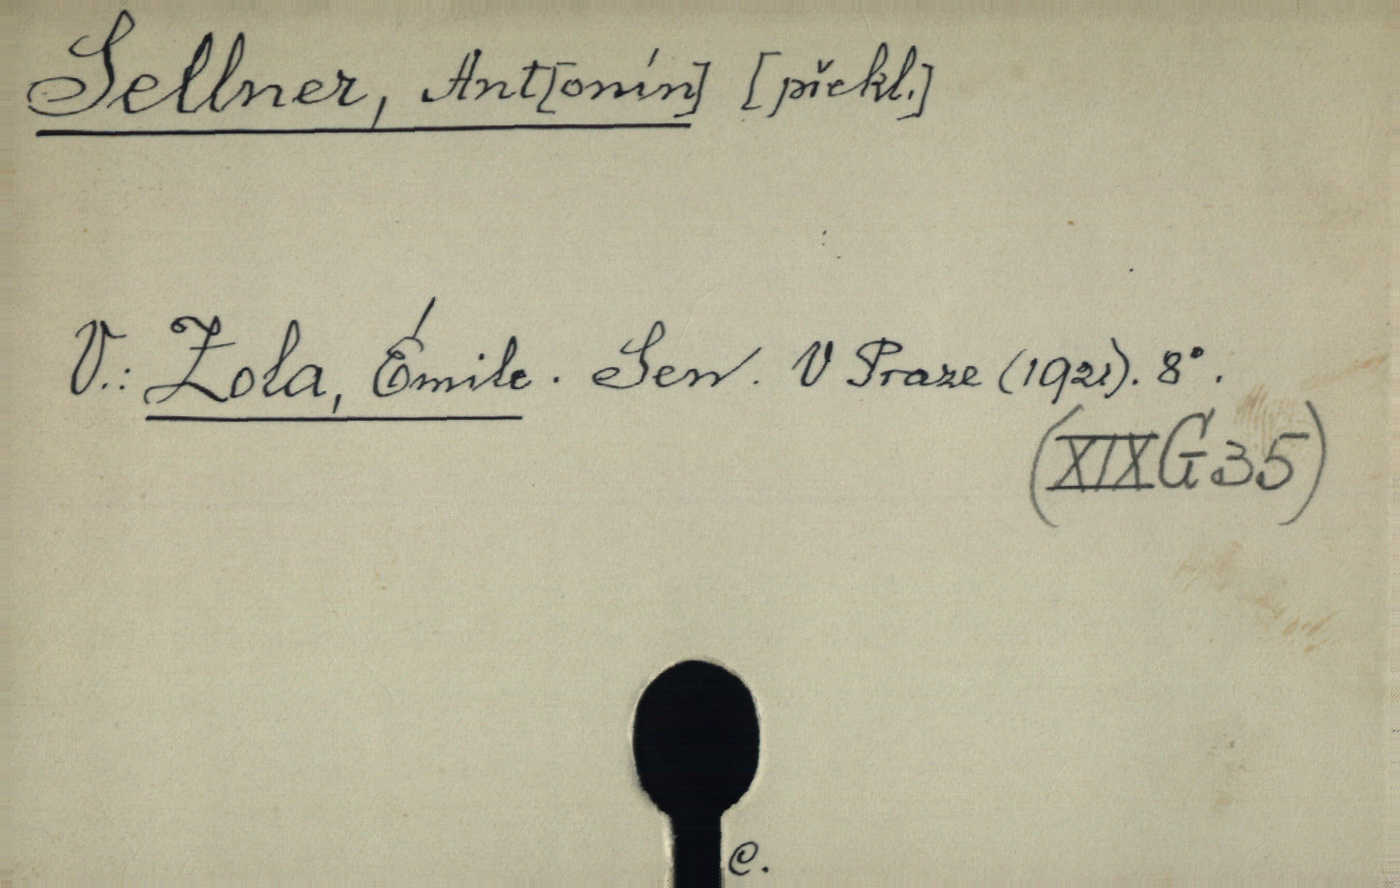 Sellner, Ant[onín] [překl.]
V.: Zola, Émile. Sen. V Praze (1921). 8°.
(XIX G 35)
C.